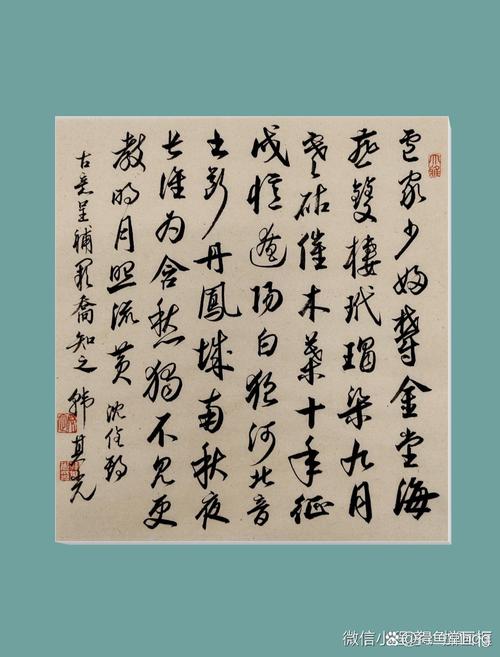 盧家少婦鬱金堂海
燕雙棲玳瑁梁九月
寒砧催木葉十年征
戍憶遼陽白狼河北音
書斷丹鳳城南秋夜
長誰为含愁獨不見更
教明月照流黄 沈佺期
古意呈補闕喬知之 韩其光
微信小